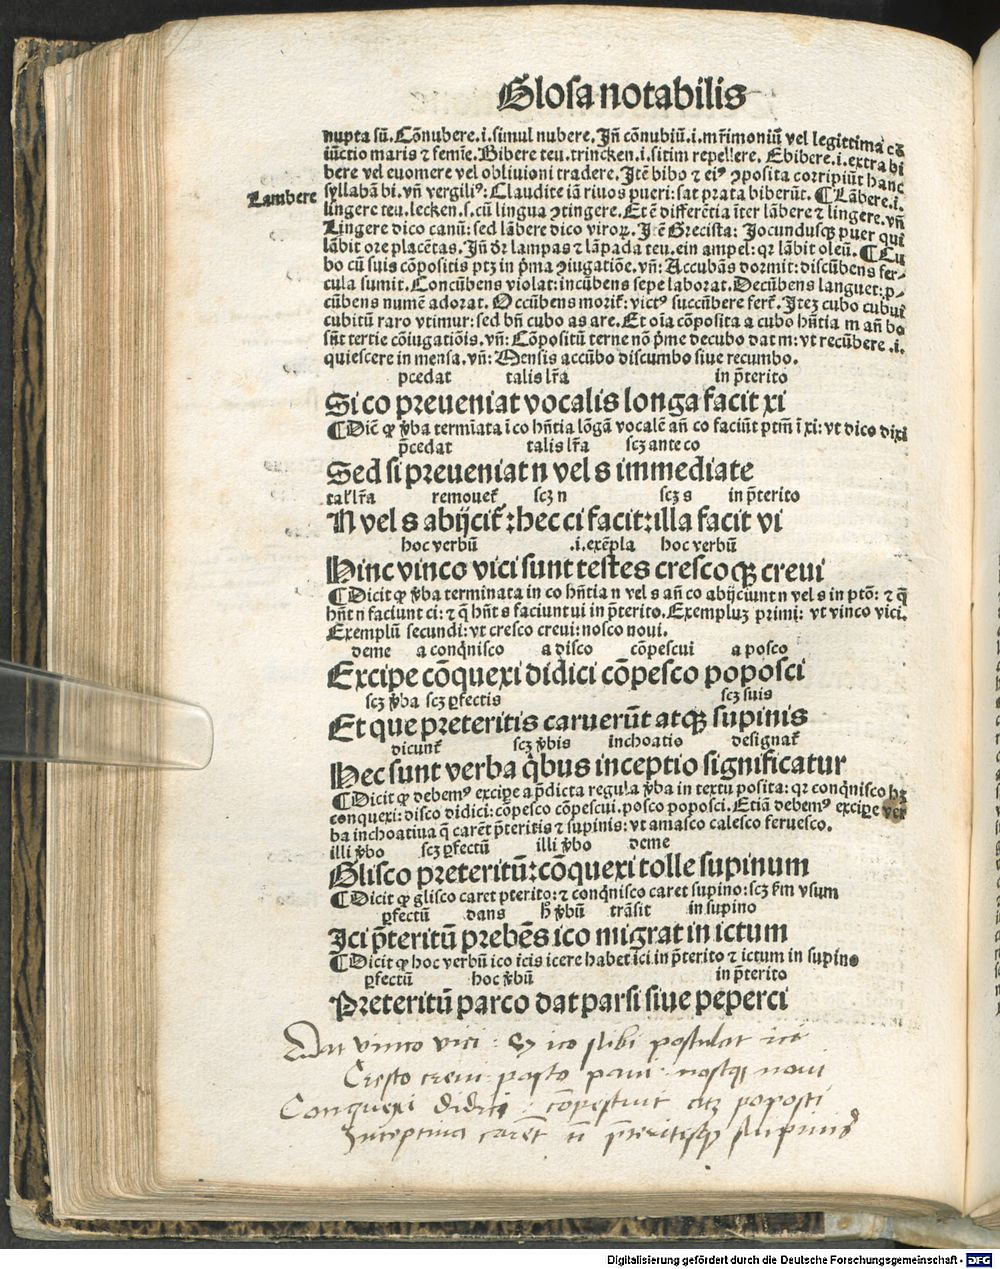 Glosa notabilis
nupta sū. Cōnubere .i. simul nubere. Jn̄ cōnubiū .i. mr̄imoniū vel legittima cō
iūctio maris ⁊ femīe. Bibere teu. trincken .i. sitim repellere. Ebibere .i. extra bi
bere vel euomere vel obliuioni tradere. Jtē bibo ⁊ eiꝰ ꝯposita corripiūt hanc
syllabā bi. vn̄ vergiliꝰ: Claudite iā riuos pueri: sat prata biberūt. ¶ Lābere .i.
Lambere
lingere teu. lecken .s. cū lingua ꝯtingere. Et ē differētia īter lābere ⁊ lingere. vn̄
Lingere dico canū: sed lābere dico viroꝝ. J ē Grecista: Jocundusqꝫ puer qui
lābit ore placētas. Jn̄ dr̄ lampas ⁊ lāpada teu. ein ampel: qꝛ lābit oleū. ¶ Cu
bo cū suis cōpositis ptꝫ in p̄ma ꝯiugatiōe. vn̄: Accubās dormit: discūbens fer⸗
cula sumit. Concūbens violat: incūbens sepe laborat. Decūbens languet: p⸗
cūbens numē adorat. Occūbens morit̄: victꝰ succūbere fert̄. Jteꝫ cubo cubui
cubitū raro vtimur: sed bn̄ cubo as are. Et oīa cōposita a cubo hn̄tia m an̄ bo
sūt tertie cōiugatiōis. vn̄: Cōpositū terne nō p̄me decubo dat m: vt recūbere .i.
quiescere in mensa. vn̄: Mensis accūbo discumbo siue recumbo.
pcedat talis lr̄a in p̄terito
Si co preueniat vocalis longa facit xi
¶ Dicit̄ ꝙ v̄ba termīata ī co hn̄tia lōgā vocalē an̄ co faciūt ptm̄ ī xi: vt dico dixi
p̄cedat talis lr̄a scꝫ ante co
Sed si preueniat n vel s immediate
tal' lr̄a remouet̄ scꝫ n scꝫ s in p̄terito
N vel s abijcit̄: hec ci facit: illa facit vi
hoc verbū .i. exēpla hoc verbū
Hinc vinco vici sunt testes crescoqꝫ creui
¶ Dicit ꝙ v̄ba terminata in co hn̄tia n vel s an̄ co abijciunt n vel s in ptō: ⁊ q̄
hn̄t n faciunt ci: ⁊ q̄ hn̄t s faciunt ui in p̄terito. Exempluꝫ primi: vt vinco vici.
Exemplū secundi: vt cresco creui: nosco noui.
deme a conq̄nisco a disco cōpescui a posco
Excipe cōquexi didici cōpesco poposci
scꝫ v̄ba scꝫ ꝑfectis scꝫ suis
Et que preteritis caruerūt atqꝫ supinis
dicunt̄ scꝫ v̄bis inchoatio designat̄
Hec sunt verba q̄bus inceptio significatur
¶ Dicit ꝙ debemꝰ excipe a p̄dicta regula v̄ba in textu posita: qꝛ conq̄nisco hꝫ
conquexi: disco didici: cōpesco cōpescui. posco poposci. Etiā debemꝰ excipe ver
ba inchoatiua q̄ carēt p̄teritis ⁊ supinis: vt amasco calesco feruesco.
illi v̄bo scꝫ ꝑfectū illi v̄bo deme
Glisco preteritū: cōquexi tolle supinum
¶ Dicit ꝙ glisco caret pterito: ⁊ conq̄nisco caret supino: scꝫ fm̄ vsum
ꝑfectū dans h̄ v̄bū trāsit in supino
Jci p̄teritū prebēs ico migrat in ictum
¶ Dicit ꝙ hoc verbū ico icis icere habet ici in p̄terito ⁊ ictum in supino
ꝑfectū hoc v̄bū in p̄terito
Preteritū parco dat parsi siue peperci
Dat vinco vici: ico sibi postulat ici
Cresco creui pasco paui noscqꝫ noui
Conquexi didici compescuit atqꝫ poposci
Inceptiua carēt p̄teritisqꝫ supinis
Digitalisierung gefördert durch die Deutsche Forschungsgemeinschaft - DFG